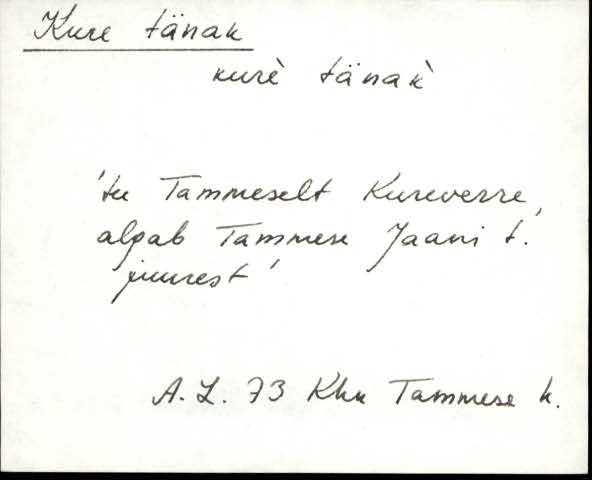 Kure tänak
kurè tänak̀
'tee Tammeselt Kureverre,
algab Tammese Jaani t.
juurest'
A. L. 73 Khk Tammese k.